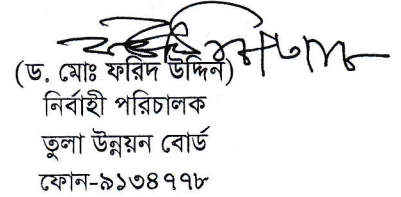 (ড. মোঃ ফরিদ উদ্দিন)
নির্বাহী পরিচালক
তুলা উন্নয়ন বোর্ড
ফোন-৯১৩৪৭৭৮